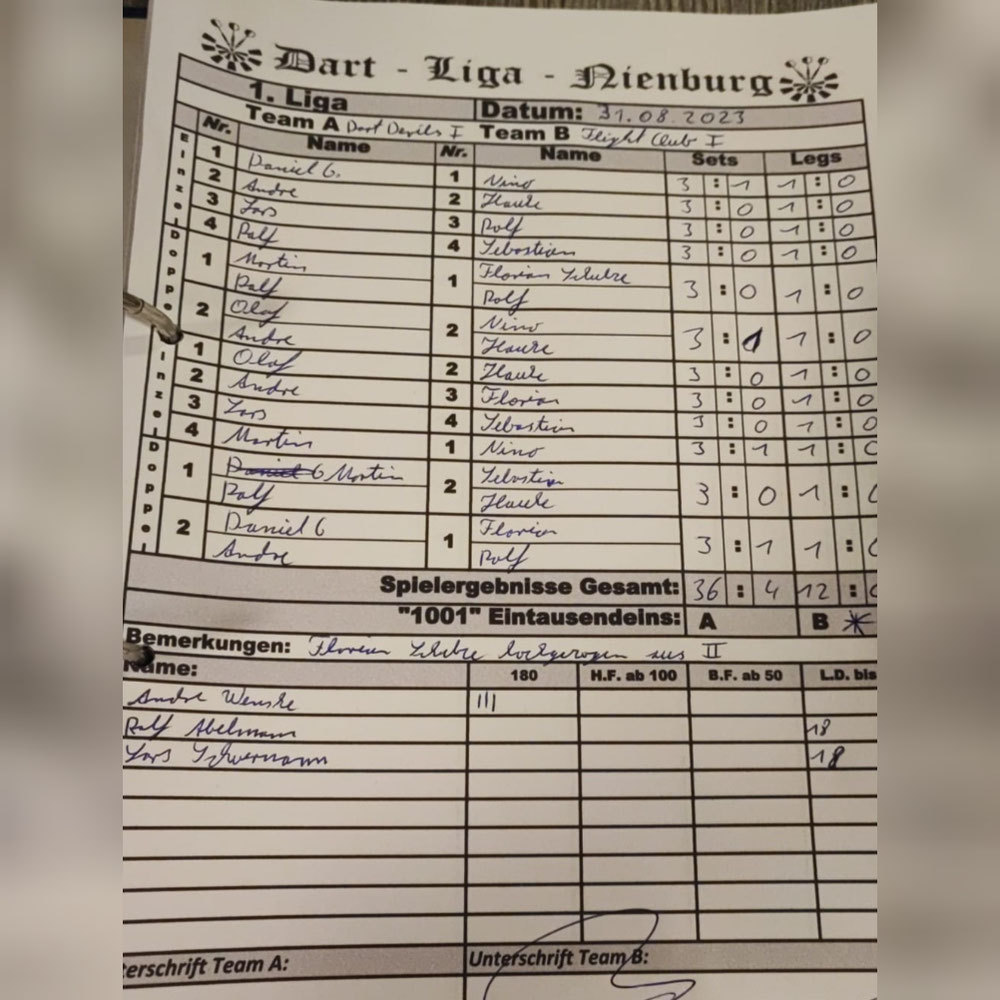 Dart - Liga - Nienburg
1. Liga Datum: 31.08.2023
Team A Dart Devils I Team B Flight Club I
Nr. Name Nr. Name Sets Legs
Einzel
1 Daniel G. 1 Nino 3 : 1 1 : 0
2 Andre 2 Hauke 3 : 0 1 : 0
3 Lars 3 Rolf 3 : 0 1 : 0
4 Ralf 4 Sebastian 3 : 0 1 : 0
Doppel
1 Martin 1 Florian Schulze 3 : 0 1 : 0
Ralf Rolf
2 Olaf 2 Nino 3 : 1 1 : 0
Andre Hauke
inzel
1 Olaf 2 Hauke 3 : 0 1 : 0
2 Andre 3 Florian 3 : 0 1 : 0
3 Lars 4 Sebastian 3 : 0 1 : 0
4 Martin 1 Nino 3 : 1 1 : 0
Doppel
1 Daniel G Martin 2 Sebastian 3 : 0 1 : 0
Ralf Hauke
2 Daniel G 1 Florian 3 : 1 1 : 0
Andre Rolf
Spielergebnisse Gesamt: 36 : 4 12 : 0
"1001" Eintausendeins: A B
Bemerkungen: Florian Schulze hochgezogen aus II
Name: 180 H.F. ab 100 B.F. ab 50 L.D. bis
Andre Wenske III
Ralf Abelmann 18
Lars 18
terschrift Team A: Unterschrift Team B: